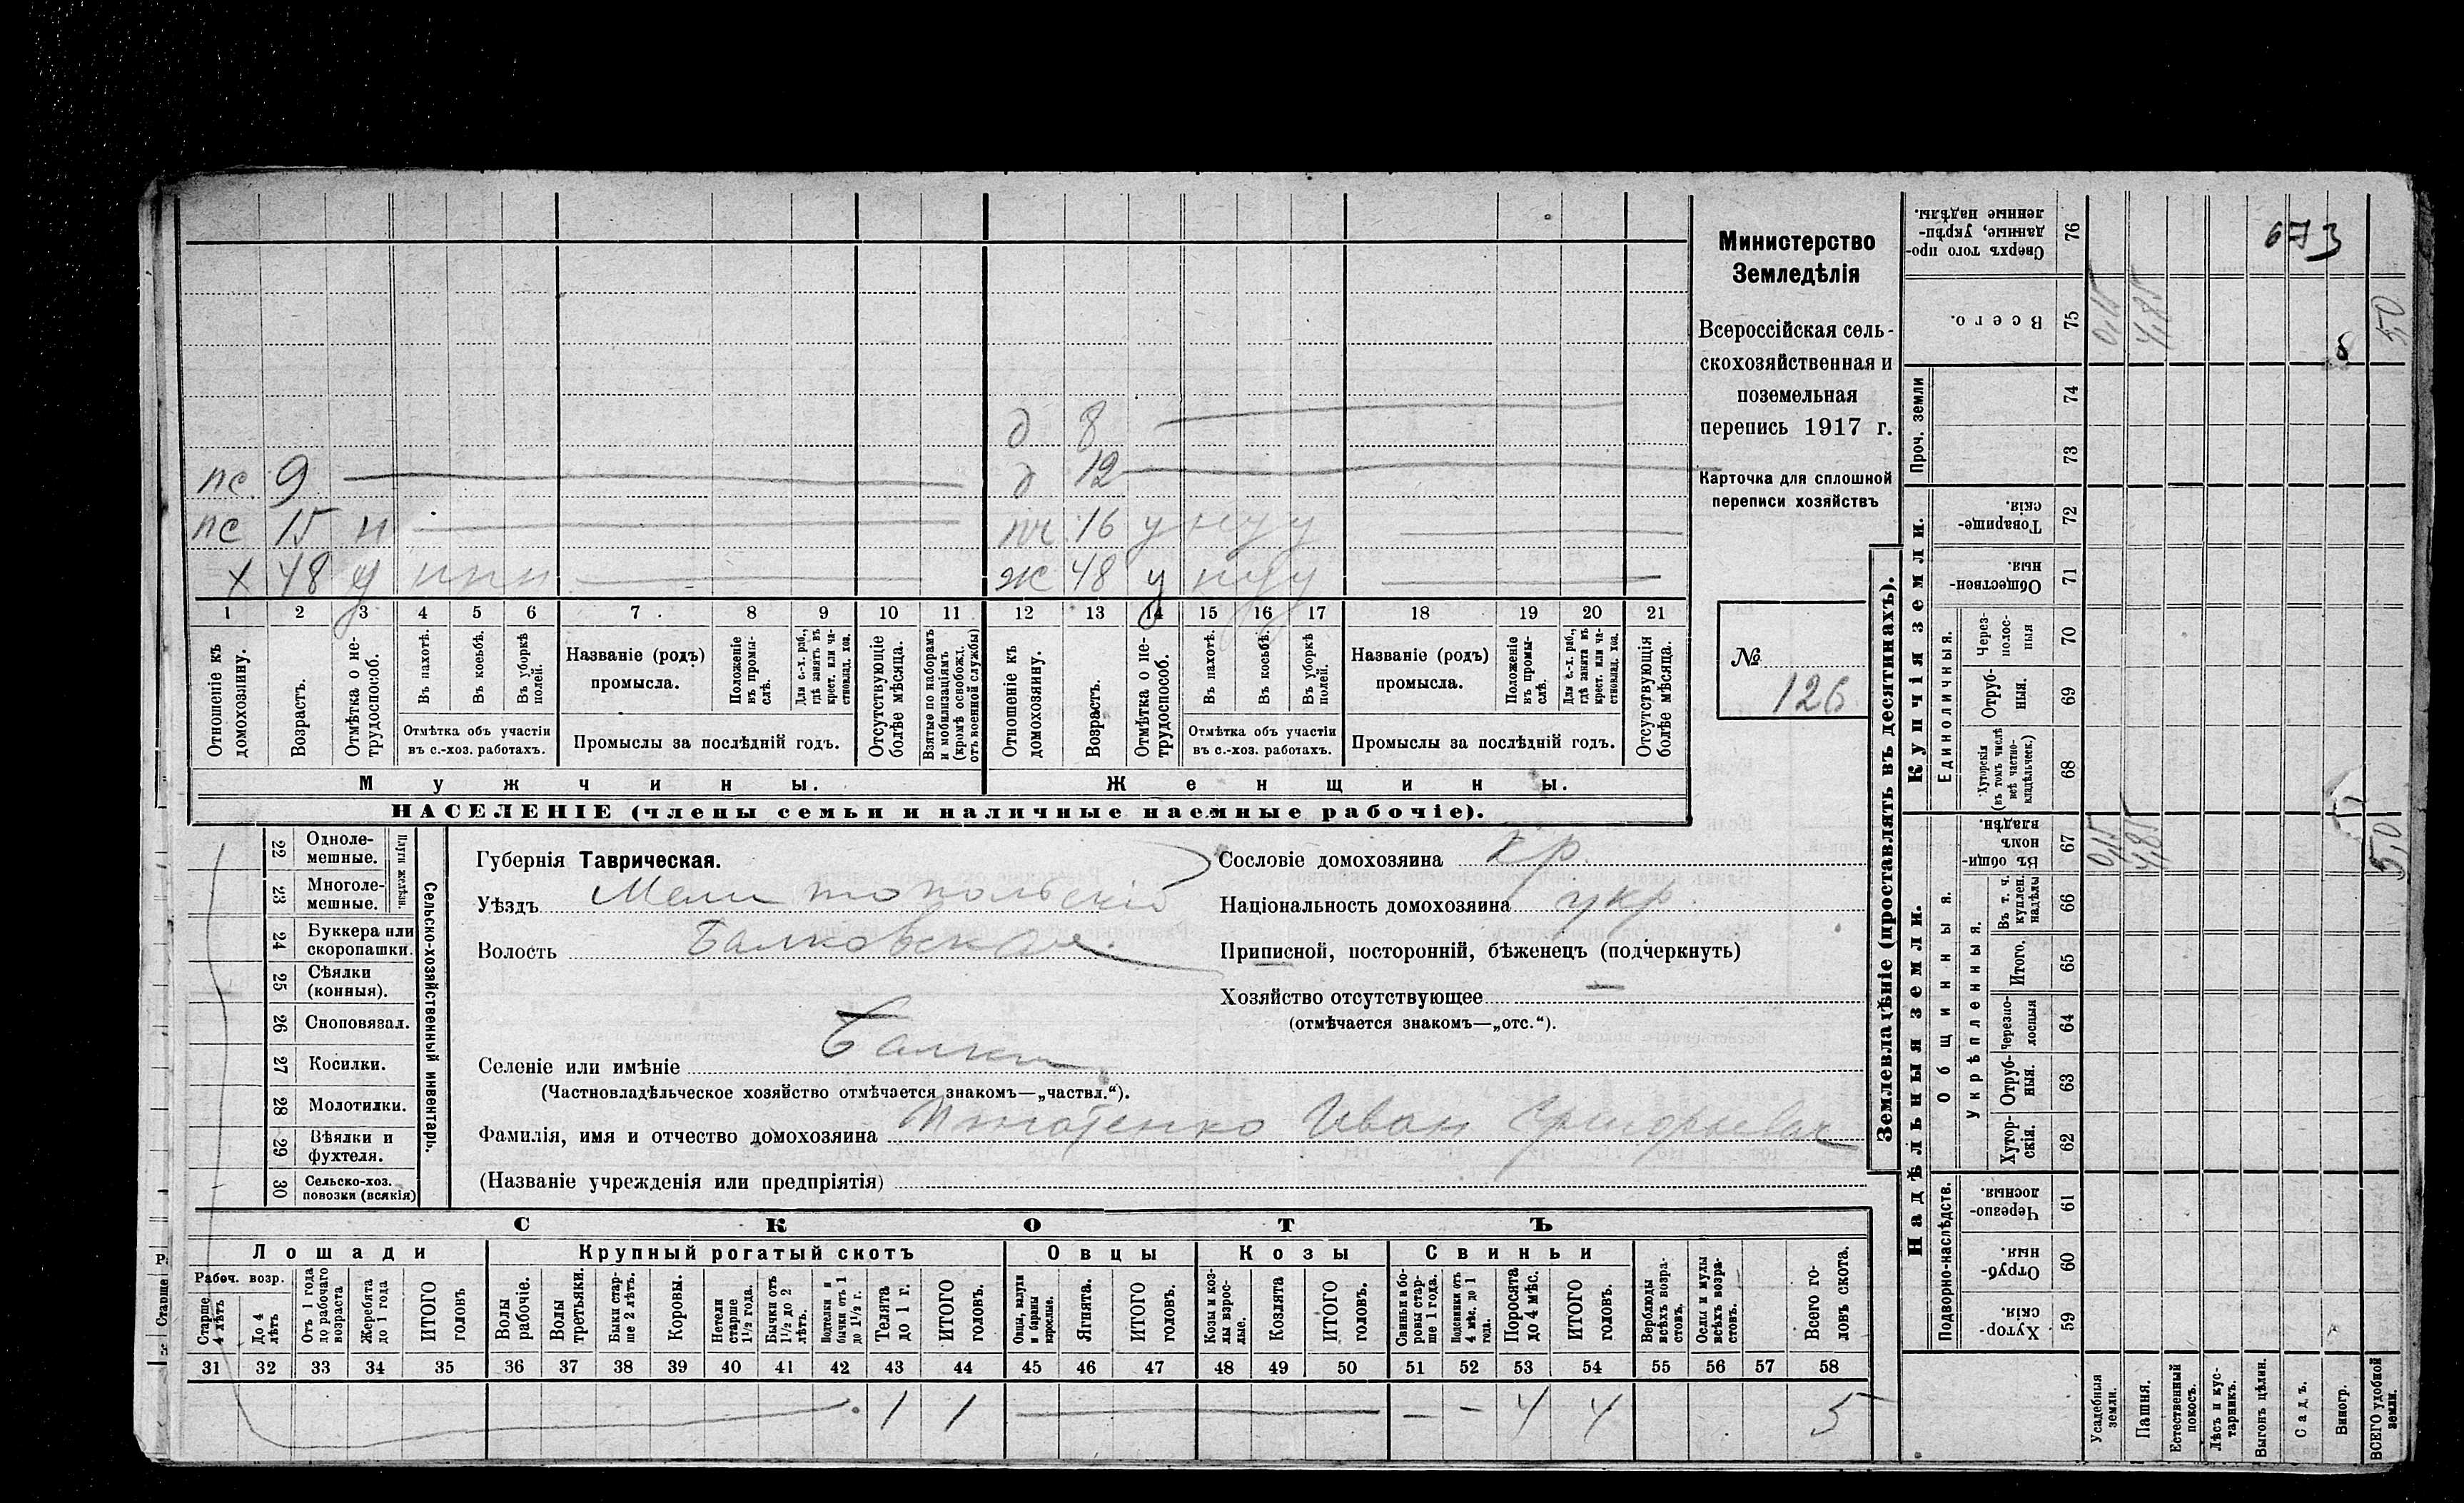 д 8
пс 9 д 12
пс 15 н 16 у н у у
х 48 у п п п ж 48 у н у у
1 2 3 4 5 6 7 8 9 10 11 12 13 14 15 16 17 18 19 20 21
Отношеніе къ домохозяину.
Возрастъ.
Отмѣтка о нетрудоспособ.
Въ пахотѣ.
Въ косьбѣ.
Въ уборкѣ полей.
Отмѣтка объ участіи
въ с.-хоз. работахъ.
Названіе (родъ)
промысла.
Положеніе въ промыслѣ.
Для с.-х. раб., гдѣ занятъ въ крест. или частновлад. хоз.
Промыслы за послѣдній годъ.
Отсутствующіе болѣе мѣсяца.
Взятые по наборамъ и мобилизаціямъ (кромѣ освобожд. отъ военной службы)
Отношеніе къ домохозяину.
Возрастъ.
Отмѣтка о нетрудоспособ.
Въ пахотѣ.
Въ косьбѣ.
Въ уборкѣ полей.
Отмѣтка объ участіи
въ с.-хоз. работахъ.
Названіе (родъ)
промысла.
Положеніе въ промыслѣ.
Для с.-х. раб., гдѣ занята въ крест. или частновлад. хоз.
Промыслы за послѣдній годъ.
Отсутствующія болѣе мѣсяца.
Мужчины. Женщины.
НАСЕЛЕНІЕ (члены семьи и наличные наемные рабочіе).
Министерство
Земледѣлія
Всероссійская сель-
скохозяйственная и
поземельная
перепись 1917 г.
Карточка для сплошной
переписи хозяйствъ
№
126
22 Одноле-
мешные.
23 Многоле-
мешные.
Плуги желѣзн.
24 Буккера или
скоропашки.
25 Сѣялки
(конныя).
26 Сноповязал.
27 Косилки.
28 Молотилки.
29 Вѣялки и
фухтеля.
30 Сельско-хоз.
повозки (всякія)
Сельско-хозяйственный инвентарь.
Губернія Таврическая.
Уѣздъ Мелитопольскій
Волость Балковская
Селеніе или имѣніе Балки
(Частновладѣльческое хозяйство отмѣчается знакомъ—„частвл.“).
Фамилія, имя и отчество домохозяина Иван Григорьевич
(Названіе учрежденія или предпріятія)
Сословіе домохозяина кр.
Національность домохозяина укр.
Приписной, посторонній, бѣженецъ (подчеркнуть)
Хозяйство отсутствующее —
(отмѣчается знакомъ—„отс.“).
СКОТЪ
Лошади Крупный рогатый скотъ Овцы Козы Свиньи
Рабоч. возр.
Старше 4 лѣтъ
До 4 лѣтъ
Отъ 1 года до рабочаго возраста
Жеребята до 1 года
ИТОГО головъ
Волы рабочіе.
Волы третьяки.
Быки старше 2 лѣтъ.
Коровы.
Нетели старше 1½ года.
Бычки отъ 1½ до 2 лѣтъ.
бычки отъ 1 до 1½ г.
Телята до 1 г.
ИТОГО головъ.
Овцы, валухи и бараны взрослые.
Ягнята.
ИТОГО головъ.
Козы и козлы взрослые.
Козлята
ИТОГО головъ.
Свиньи и боровы старше 1 года.
Подсвинки отъ 4 мѣс. до 1 года.
Поросята до 4 мѣс.
ИТОГО головъ.
Верблюды всѣхъ возрастовъ.
Ослы и мулы всѣхъ возрастовъ.
Всего головъ скота.
31 32 33 34 35 36 37 38 39 40 41 42 43 44 45 46 47 48 49 50 51 52 53 54 55 56 57 58
1 1 — — 4 4 5
Землевладѣніе (проставлять въ десятинахъ).
Надѣльныя земли. Купчія земли. Проч. земли
Подворно-наслѣдств.
Общинныя.
Укрѣпленныя.
Единоличныя.
Хуторскія. 59
Отрубныя. 60
Черезполосныя. 61
Хуторскія. 62
Отрубныя. 63
Черезполосныя 64
Итого. 65
Въ т. ч. куплен. надѣлы 66
Въ общинномъ владѣн. 67
Хуторскія (въ томъ числѣ всѣ частновладѣльческ.) 68
Отрубныя. 69
Черезполосныя 70
Общественныя. 71
Товарищескія. 72
73
74
Всего. 75
Сверхъ того проданные, укрѣпленные надѣлы. 76
Усадебныя земли. 0,15 0,15
Пашня. 4,85 4,85
Естественный покосъ.
Лѣсъ и кустарникъ.
Выгонъ цѣлин.
Садъ.
Виногр.
ВСЕГО удобной земли. 5,0 5,0
673
8